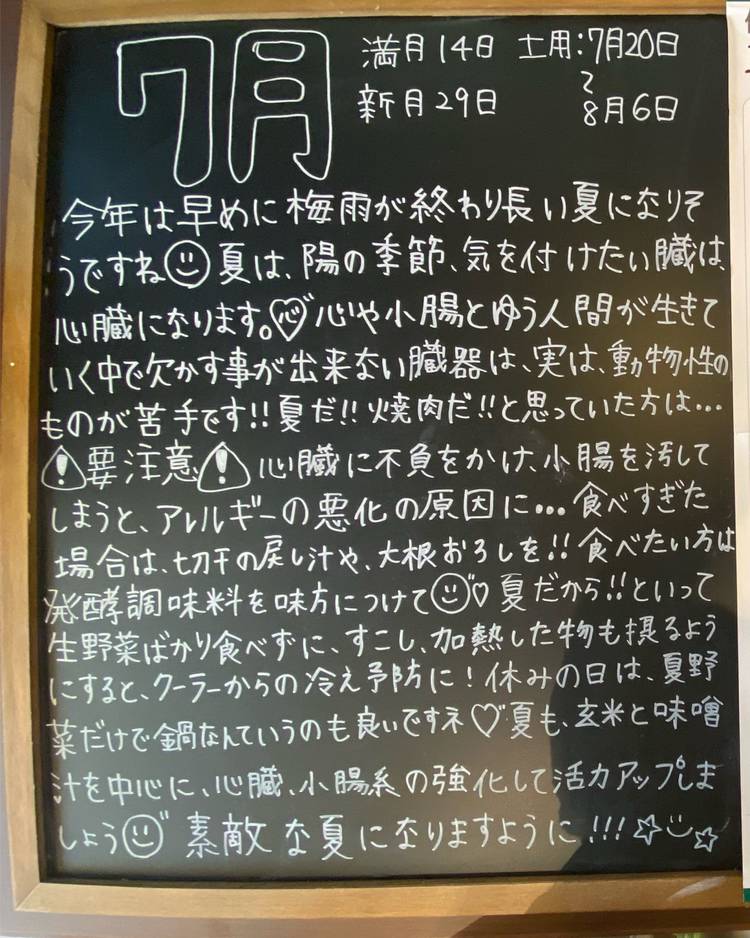 7月
満月14日 土用:7月20日
〜
新月29日 8月6日
今年は早めに梅雨が終わり長い夏になりそ
うですね 夏は、陽の季節、気を付けたい臓は、
心臓になります。心や小腸とゆう人間が生きて
いく中で欠かす事が出来ない臓器は、実は、動物性の
ものが苦手です!!夏だ!!焼肉だ!!と思っていた方は…
要注意 心臓に不負をかけ、小腸を汚して
しまうと、アレルギーの悪化の原因に…食べすぎた
場合は、切干の戻し汁や、大根おろしを!!食べたい方は
発酵調味料を味方につけて♡夏だから!!といって
生野菜ばかり食べずに、すこし、加熱した物も摂るよう
にすると、クーラーからの冷え予防に!休みの日は、夏野
菜だけで鍋なんていうのも良いですネ♡夏も、玄米と味噌
汁を中心に、心臓、小腸系の強化して活力アップしま
しょう 素敵な夏になりますように!!!☆☆